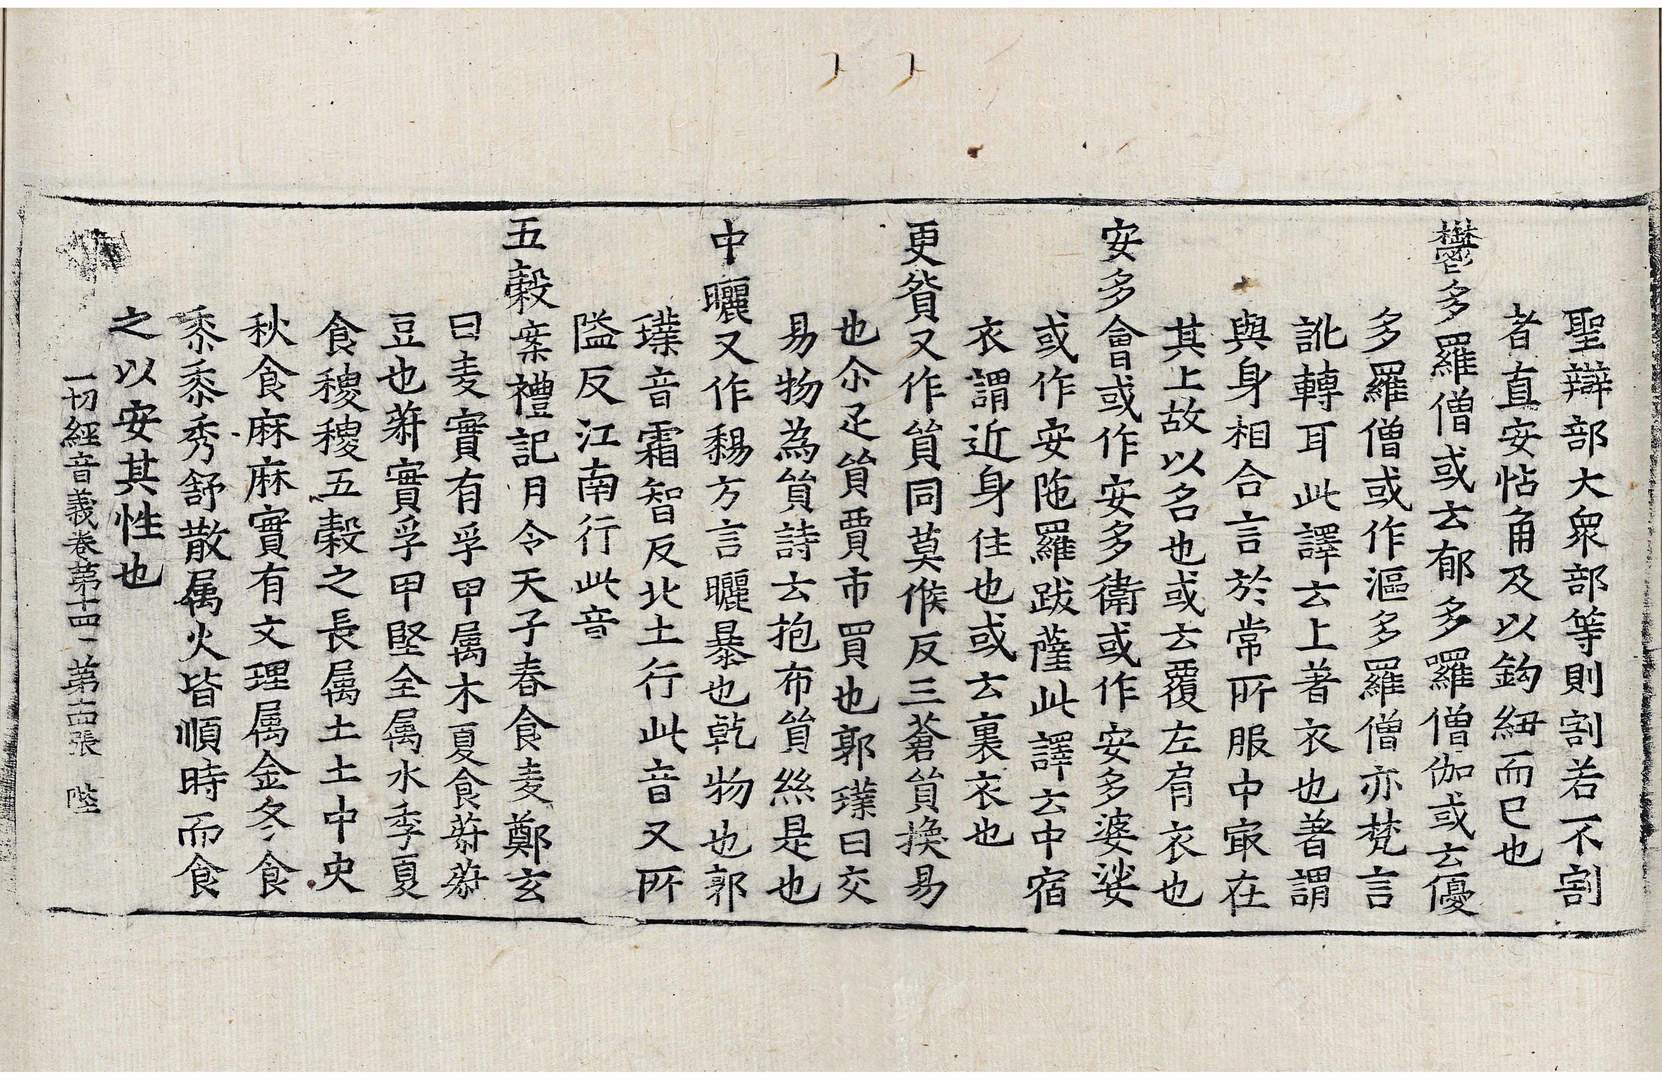 聖辯部大衆部等則割若不割
者直安怗角及以鈎紐而已也
鬱多羅僧或云郁多囉僧伽或云優
多羅僧或作漚多羅僧亦梵言
訛轉耳此譯云上著衣也著謂
與身相合言於常所服中㝡在
其上故以名也或云覆左肩衣也
安多會或作安多衛或作安多婆娑
或作安陁羅跋薩此譯云中宿
衣謂近身住也或云裏衣也
更貿又作貿同莫候反三蒼貿換易
也尒疋貿賈市買也郭璞曰交
易物為貿詩云抱布貿絲是也
中曬又作㬠方言曬暴也乾物也郭
璞音霜智反北土行此音又所
隘反江南行此音
五穀案禮記月令天子春食麦鄭玄
曰麦實有孚甲属木夏食䓁䓁
豆也䓁實孚甲堅全属水季夏
食稷稷五穀之長属土土中央
秋食麻麻實有文理属金冬食
黍黍秀舒散属火皆順時而食
之以安其性也
一切經音義卷第十四 第十四張 陛